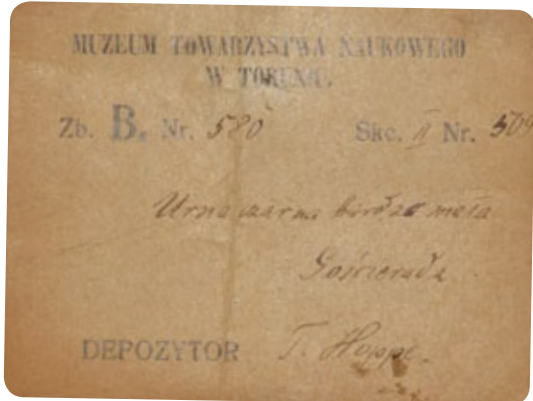 MUZEUM TOWARZYSTWA NAUKOWEGO
W TORUNIU.
Zb. B. Nr. 580 Skc. II Nr. 509
Urna czarna bardzo mała
Gościeradz
DEPOZYTOR T. Hoppe.